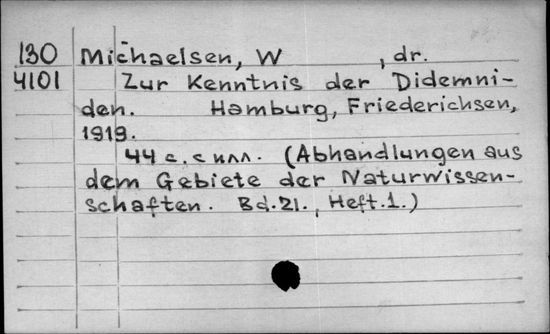 130 Michaelsen, W , dr.
4101 Zur Kenntnis der Didemni-
den. Hamburg, Friederichsen,
1919.
44 с. с илл. (Abhandlungen aus
dem Gebiete der Naturwissen-
schaften. Bd.21., Heft.1.)